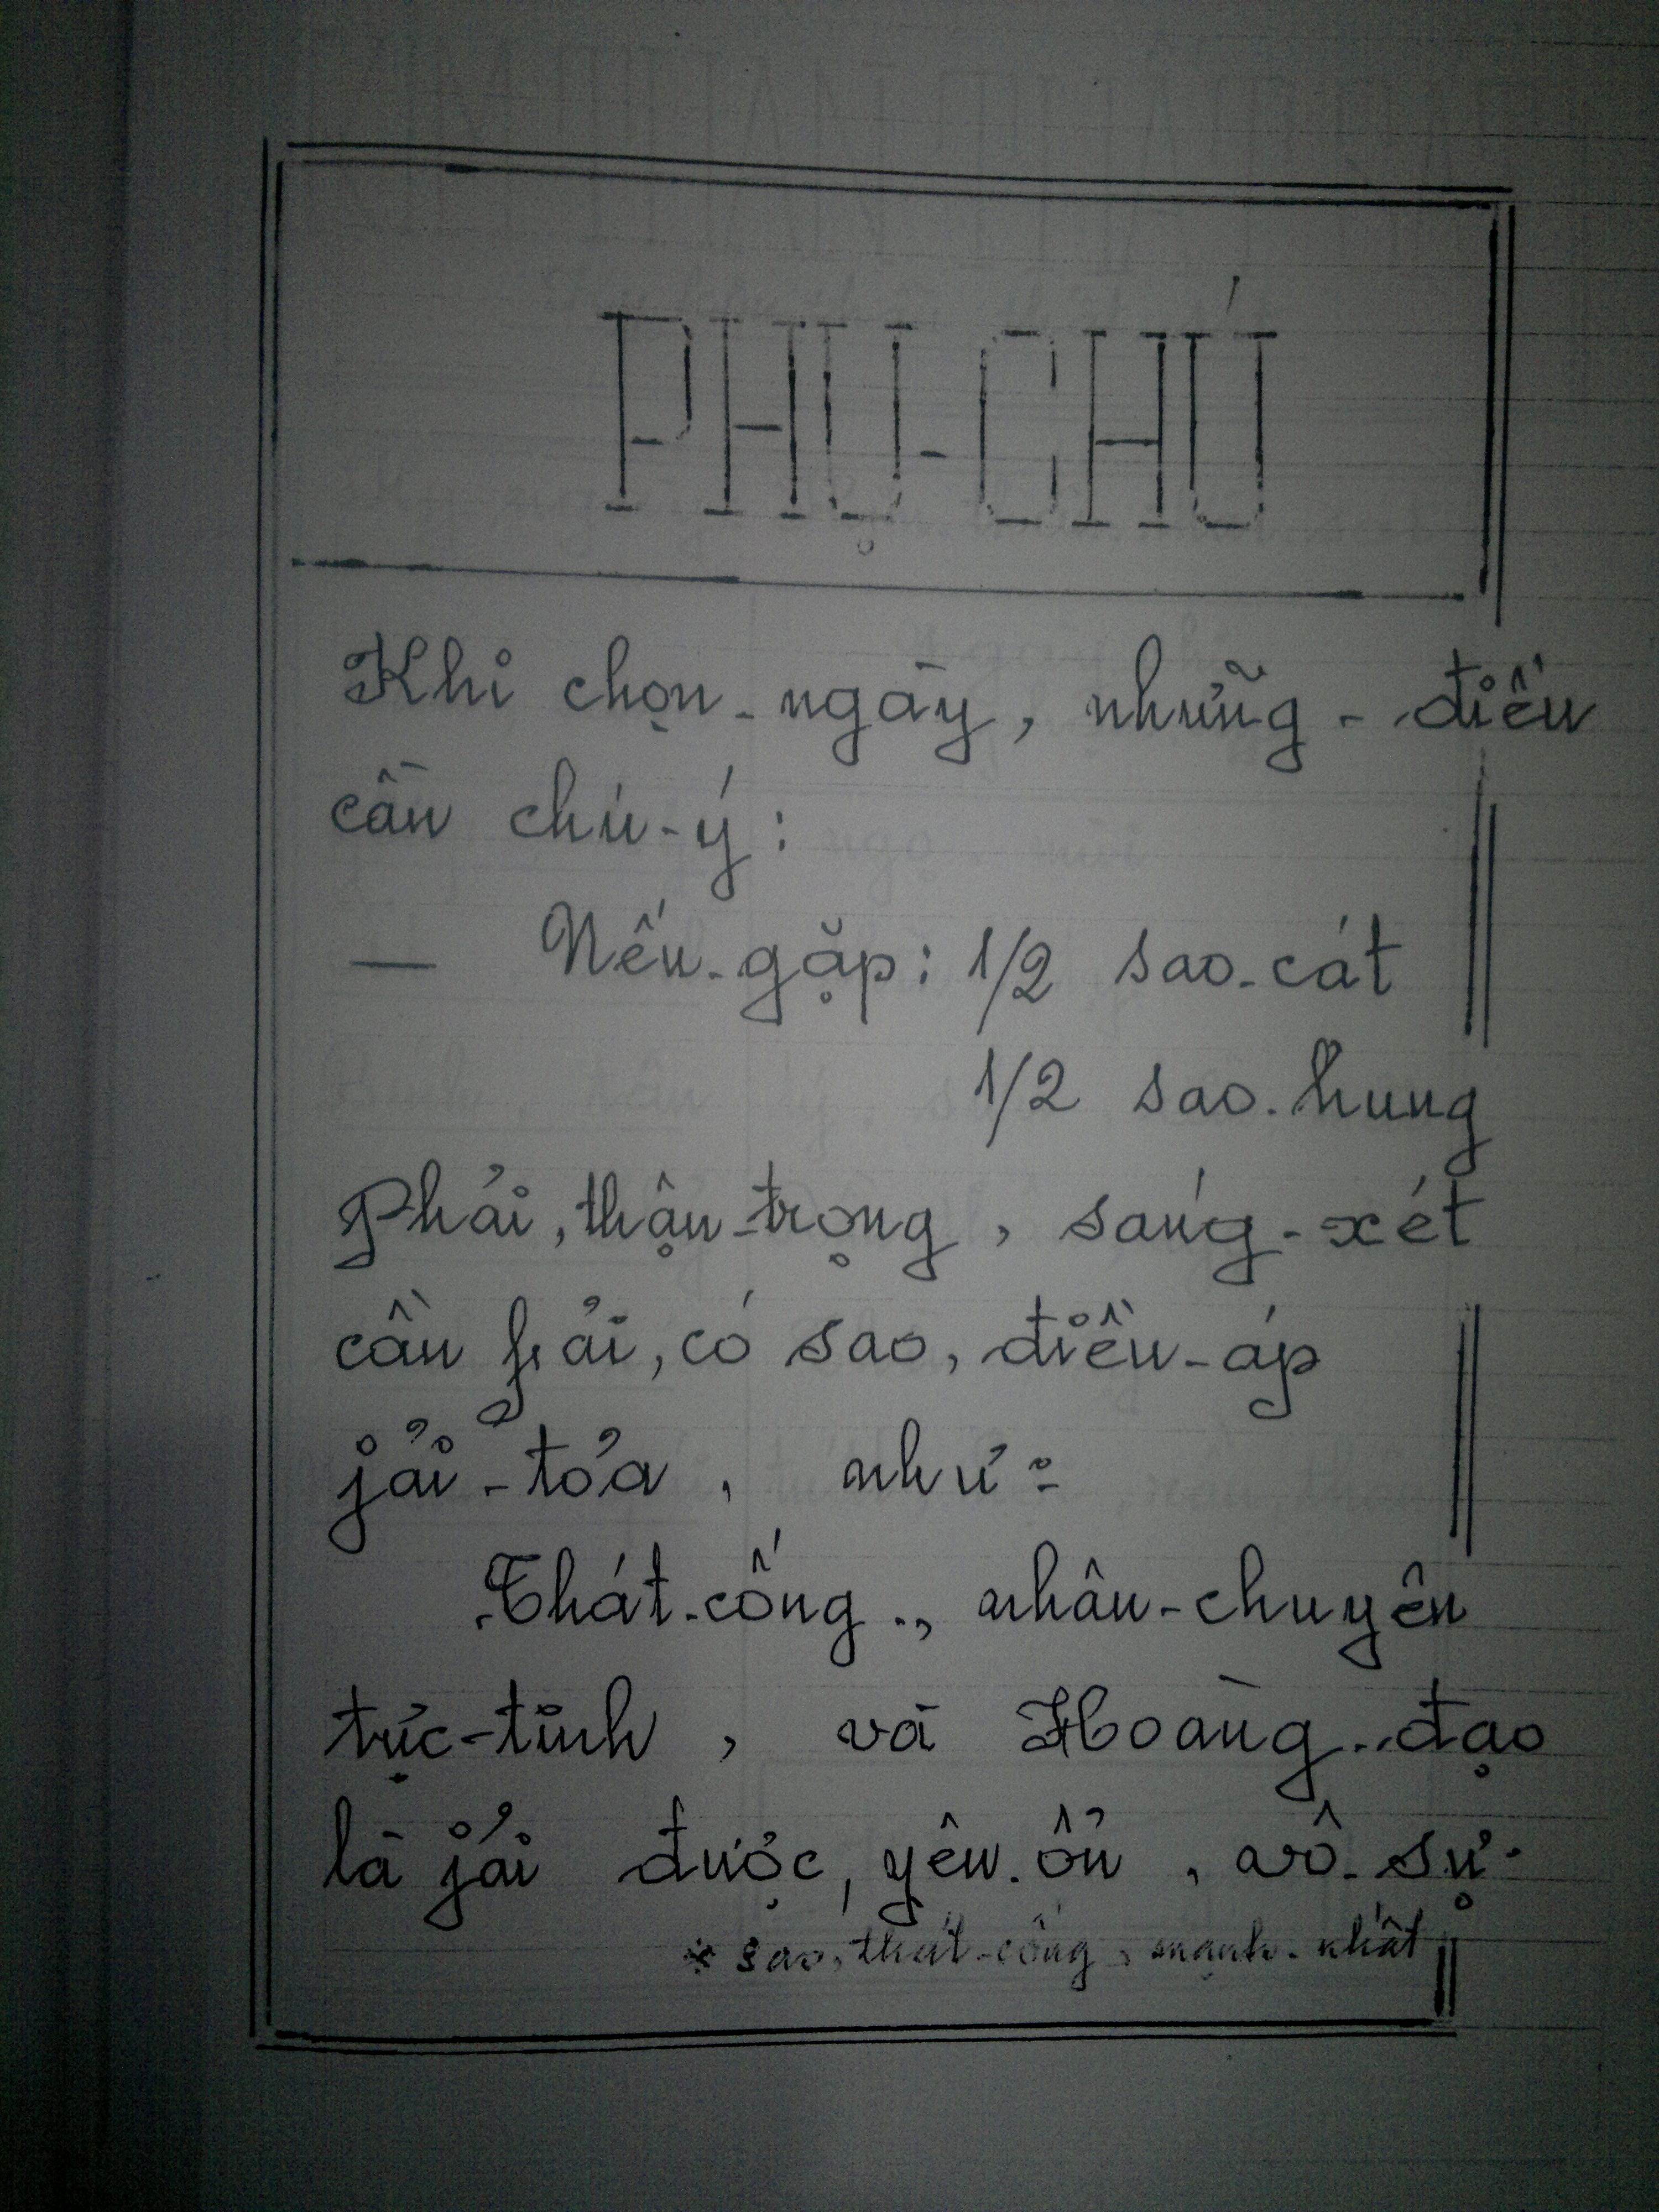 PHỤ-CHÚ
Khi chọn-ngày, những-điều
cần chú-ý:
— Nếu-gặp: 1/2 sao-cát
1/2 sao.hung
Phải, thận-trọng, sáng-xét
cần fải, có sao, điều-áp
jải-tỏa, như:
Thát-công., nhân-chuyên
trực-tinh, và Hoàng-đạo
là jải được, yên.ổn, vô-sự.
* sao, thát-công, mạnh-nhất